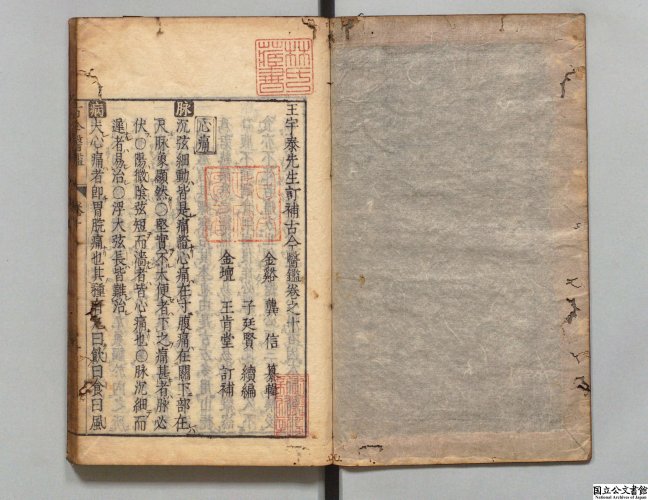 王宇泰先生訂補古今醫鑑卷之十
金谿 龔 信 纂輯
子廷賢 續編
金壇 王肯堂 訂補
心痛
脉 沉弦細動皆是痛證心痛在寸腹痛在關下部在
尺脉象顯然○堅實不大便者下之痛甚者脉必
伏○陽微陰弦短而濇者皆心痛也○脉沉細而
遲者易治○浮大弦長皆難治
病 夫心痛者即胃脘痛也其種有九曰飲曰食曰風
林氏藏書
国立公文書館
National Archives of Japan